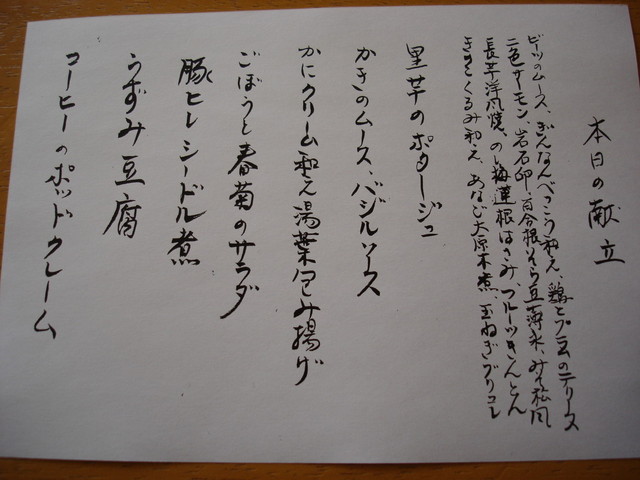 本日の献立
ビーツのムース、ぎんなんべっこう和え、鶏とプラムのテリーヌ
二色サーモン、岩石卵、百合根そら豆薄氷、みそ松風
長芋洋風焼、のし梅蓮根はさみ、フルーツきんとん
きのこくるみ和え、あなご大原木煮、玉ねぎブリュレ
里芋のポタージュ
かきのムース、バジルソース
かにクリーム和え湯葉包み揚げ
ごぼうと春菊のサラダ
豚ヒレシードル煮
うずみ豆腐
コーヒーのポッドクレーム